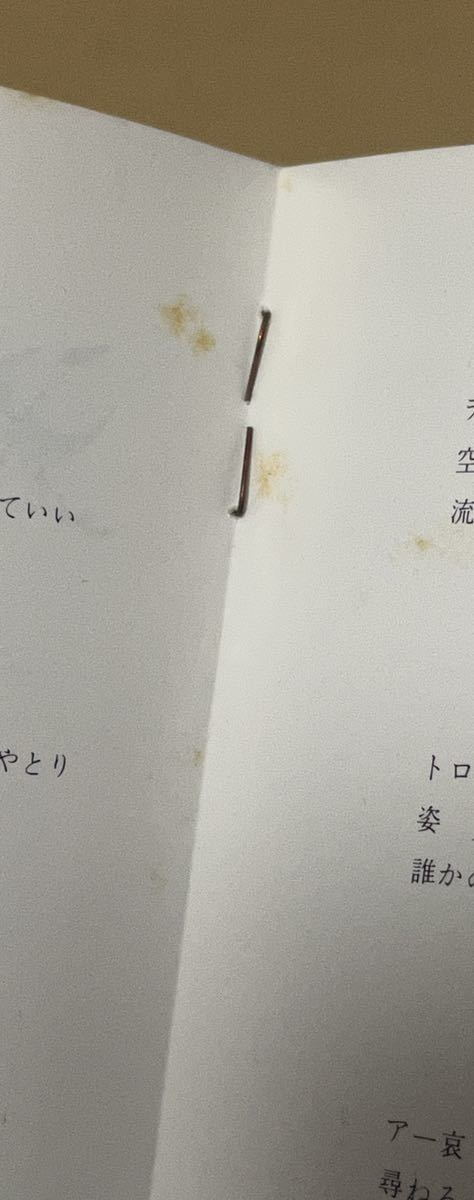 ていい
やとり
空
流
トロ
姿
誰かの
アー哀
尋ねる